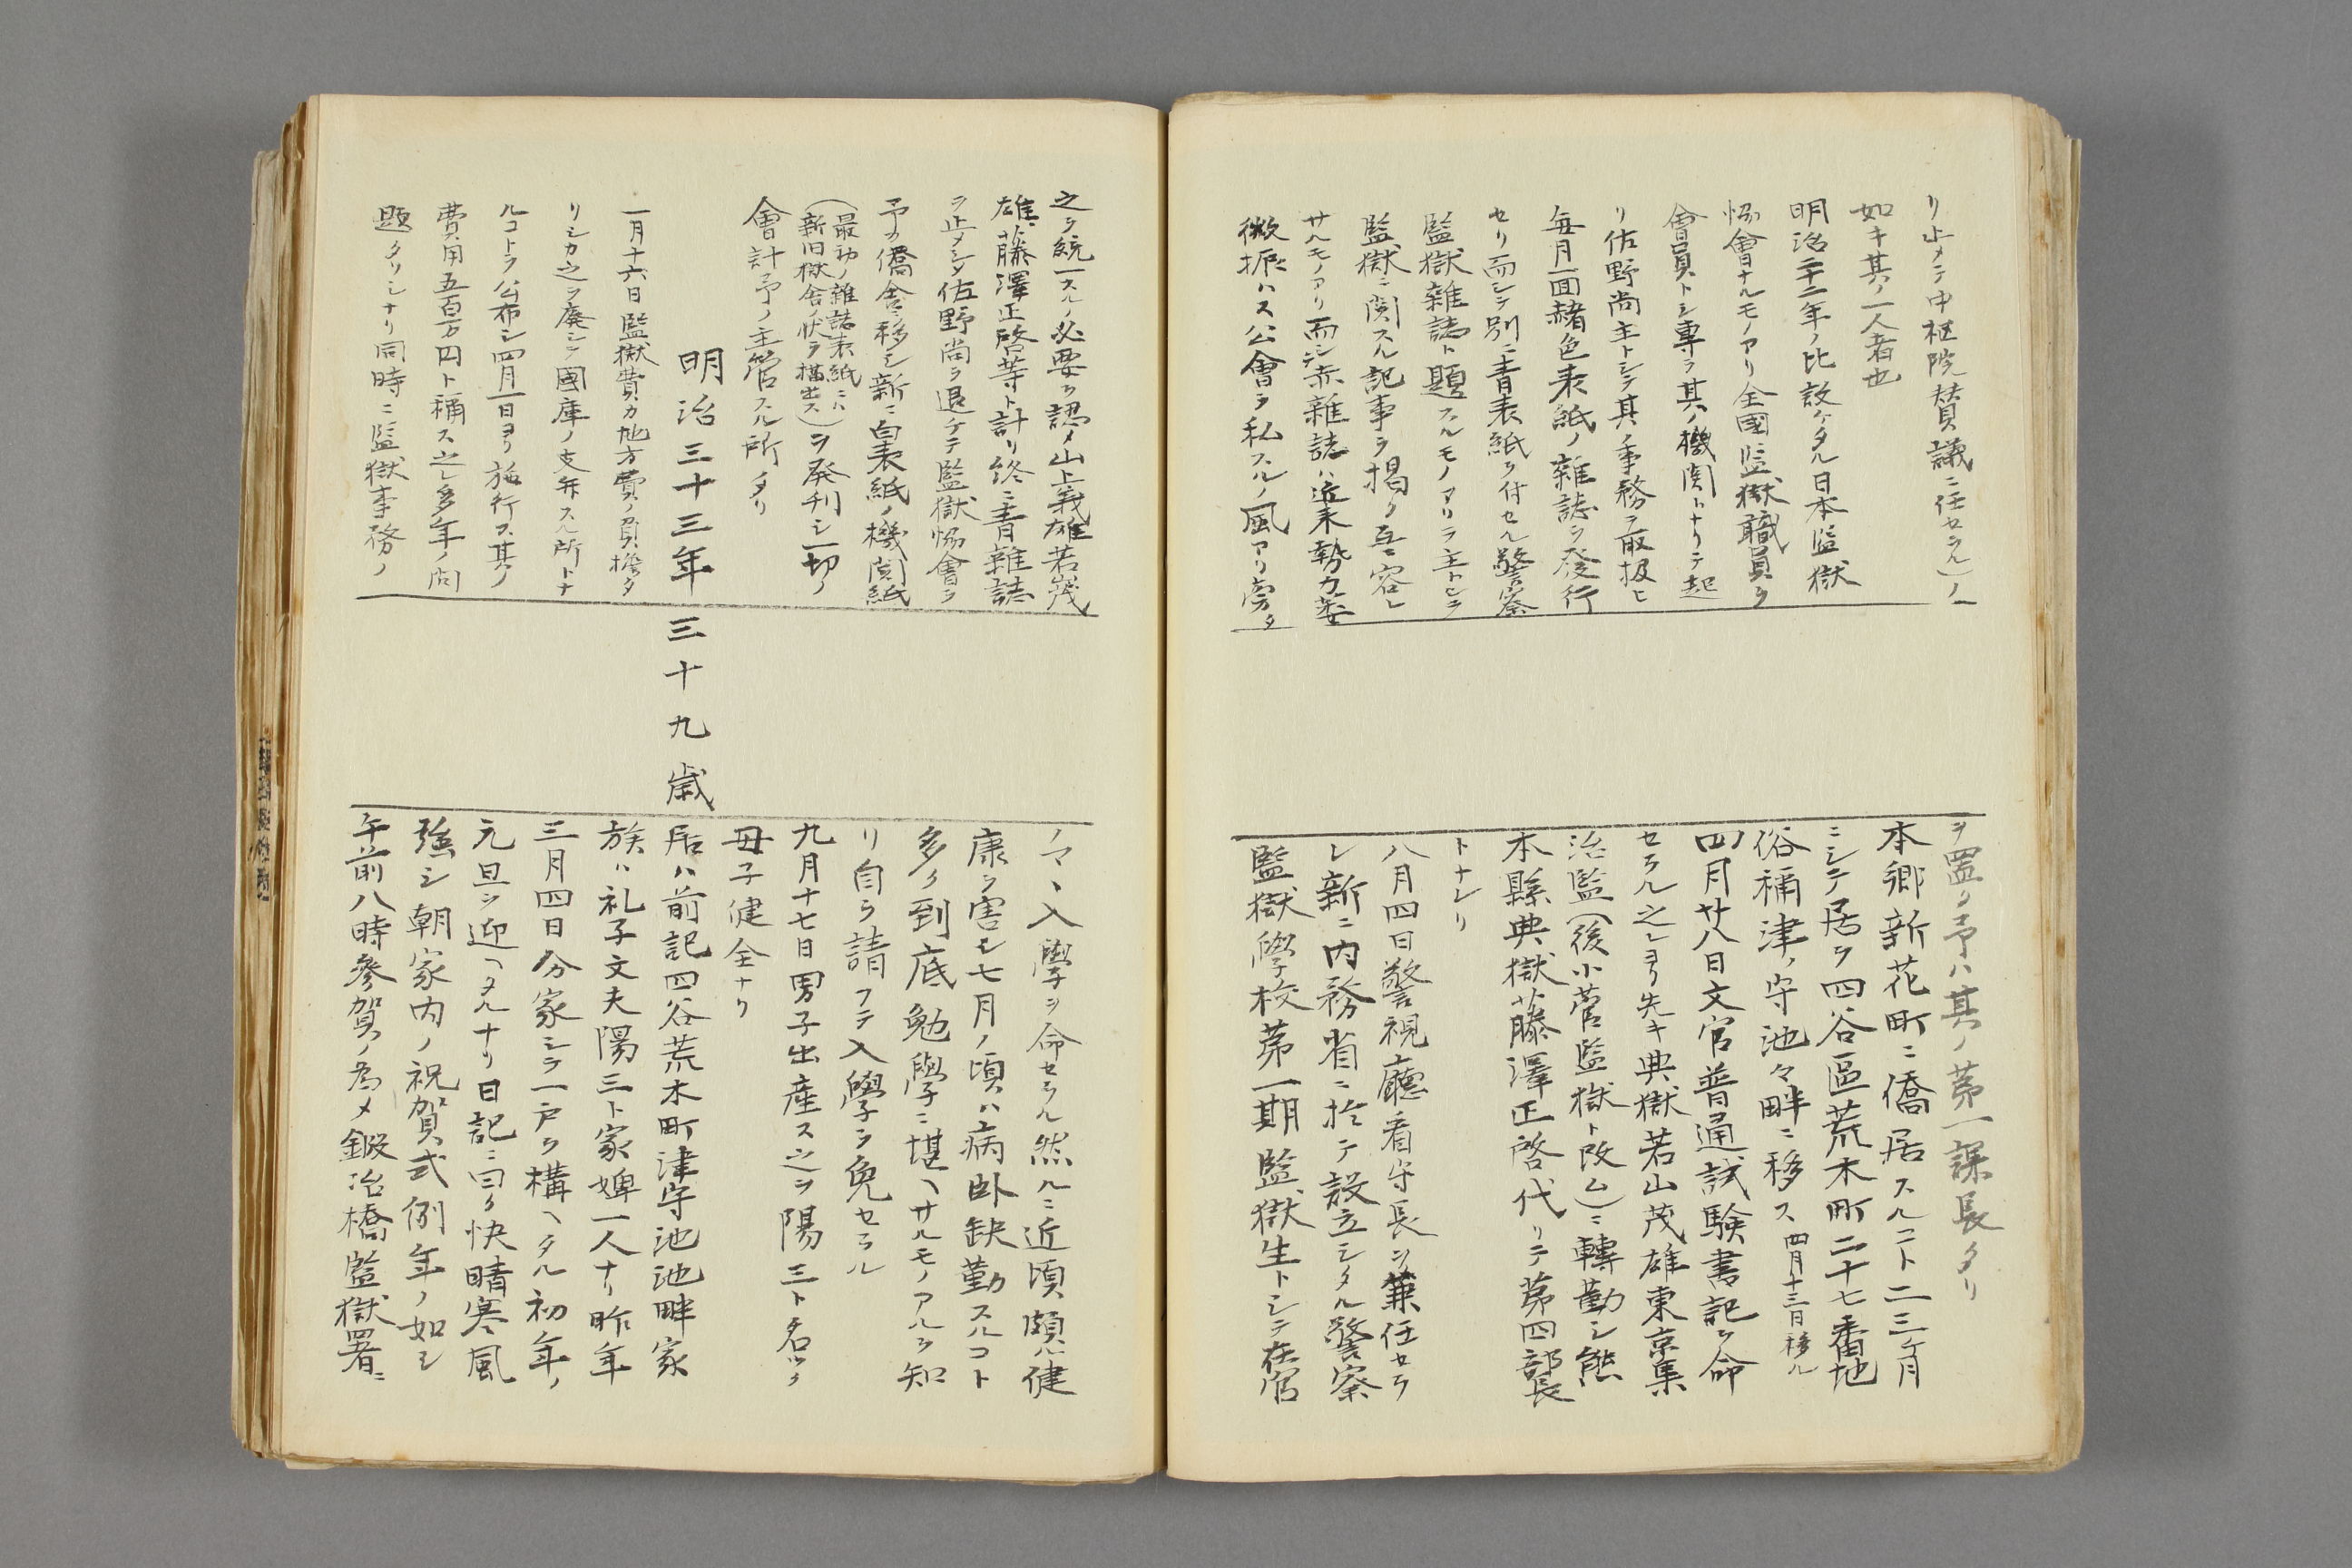 リ止メテ中枢院賛議ニ任セラル)ノ
如キ其ノ一人者也
明治二十二年ノ比設ケタル日本監獄
協會ナルモノアリ全國監獄職員ヲ
會員トシ專ラ其ノ機関トナリテ起
リ佐野尚主トシテ其ノ事務ヲ取扱ヒ
毎月一回赭色表紙ノ雜誌ヲ發行
セリ而シテ別ニ青表紙ヲ付セル警察
監獄雜誌ト題スルモノアリテ主トシテ
監獄ニ関スル記事ヲ掲ク互ニ容レ
サルモノアリ而シテ赤雜誌ハ近来勢力萎
微振ハス公會ヲ私スルノ風アリ旁タ
ヲ置ク予ハ其ノ第一課長タリ
本郷新花町ニ僑居スルコト二三ケ月
ニシテ居ヲ四谷區荒木町二十七番地
俗稱津ノ守池々畔ニ移ス四月十三日移ル
四月廿八日文官普通試驗書記ヲ命
セラル之レヨリ先キ典獄若山茂雄東京集
治監(後小菅監獄ト改ム)ニ轉勤シ熊
本縣典獄藤澤正啓代リテ第四部長
トナレリ
八月四日警視廳看守長ニ兼任セラ
レ新ニ内務省ニ於テ設立シタル警察
監獄學校第一期監獄生トシテ在官
之ヲ統一スルノ必要ヲ認メ山上義雄若茂
雄藤澤正啓等ト計リ終ニ青雜誌
ヲ止メシメ佐野尚ヲ退ケテ監獄協會ヲ
予カ僑舎ニ移シ新ニ白表紙ノ機関紙
(最初ノ雜誌表紙ニハ
新旧獄舎ノ状ヲ描出ス)ヲ発刊シ一切ノ
會計予ノ主管スル所タリ
明治三十三年 三十九歳
一月十六日監獄費カ地方費ノ負擔タ
リシカ之ヲ廢シテ國庫ノ支弁スル所トナ
ルコトヲ公布シ四月一日ヨリ施行ス其ノ
費用五百万円ト稱ス之レ多年ノ問
題タリシナリ同時ニ監獄事務ノ
ノマヽ入學ヲ命セラル然ルニ近頃頗ル健
康ヲ害シ七月ノ頃ハ病臥缺勤スルコト
多ク到底勉學ニ堪ヘサルモノアルヲ知
リ自ラ請フテ入學ヲ免セラル
九月十七日男子出産ス之ヲ陽三ト名ツク
母子健全ナリ
居ハ前記四谷荒木町津守池池畔家
族ハ礼子文夫陽三ト家婢一人ナリ昨年
三月四日分家シテ一戸ヲ構ヘタル初年ノ
元旦ヲ迎ヘタルナリ日記ニ曰ク快晴寒風
強シ朝家内ノ祝賀式例年ノ如シ
午前八時參賀ノ為メ鍛冶橋監獄署ニ